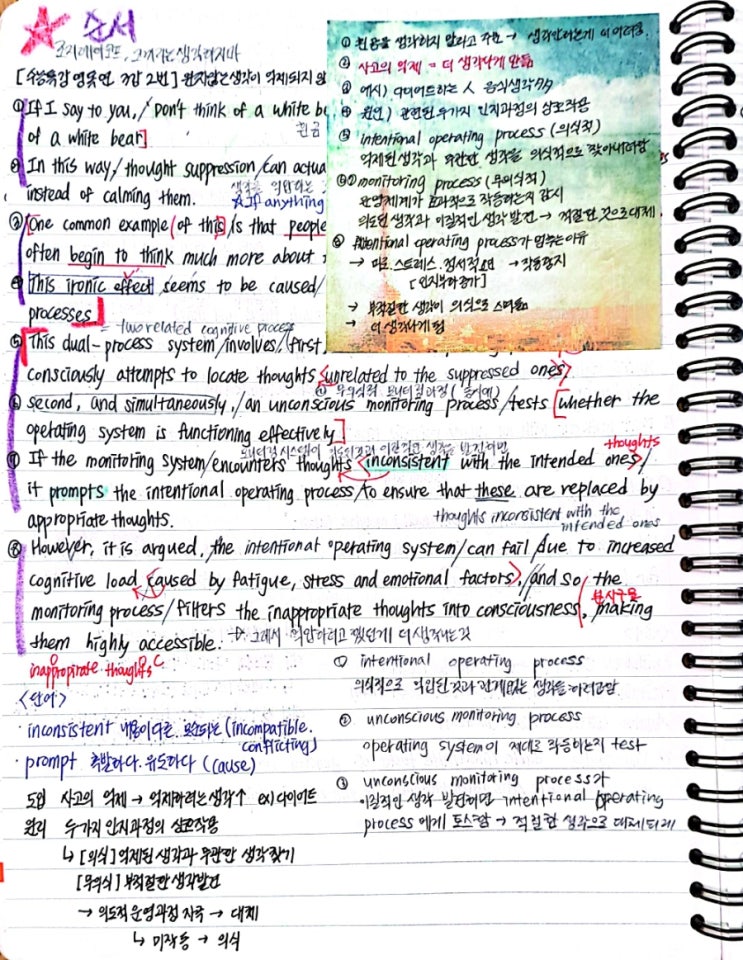 순서
코끼리에 코도, 그까지는 생각하지마
[수능특강 영독연 7강 2번] 원치않는 생각이 억제되지 않
① If I say to you, / Don't think of a white be
of a white bear]
흰곰
② In this way, / thought suppression / can actua
instead of calming them.
생각을 억압하는
If anything
③ [One common example (of this) / is that people
often begin to think much more about
④ This ironic effect / seems to be caused /
processes]
= two related cognitive process
⑤ This dual-process system / involves, / (first,
consciously attempts to locate thoughts <unrelated to the suppressed ones>
⑥ second, and simultaneously, / an unconscious monitoring process / tests [whether the
operating system is functioning effectively]
⑦ If the monitoring system / encounters thoughts <inconsistent with the intended ones> /
thoughts
it prompts the intentional operating process / to ensure that these are replaced by
appropriate thoughts.
thoughts inconsistent with the
intended ones
⑧ However, it is argued, / the intentional operating system / can fail / due to increased
cognitive load (caused by fatigue, stress and emotional factors), / and so / the
monitoring process / filters the inappropriate thoughts into consciousness, / making
분사구문
them highly accessible.
→ 그래서 억압하려고 했던게 더 생각나는것
inappropirate thoughts
① 흰곰을 생각하지 말라고 주문 → 생각안하는게 더 어려움.
② 사고의 억제 = 더 생각나게 만듦
③ 예시) 다이어트하는 人 음식생각↑↑
④ 원인) 관련된 두가지 인지과정의 상호작용
⑤ intentional operating process (의식적)
억제된생각과 무관한 생각을 의식적으로 찾아내려함
⑥⑦ monitoring process (무의식적)
운영체계가 효과적으로 작동하는지 감시
의도된 생각과 이질적인 생각 발견 → 적절한 것으로 대체.
⑧ intentional operating process가 멈추는이유
→ 피로. 스트레스. 정서적요인 → 작동정지
[인지부하증가]
→ 부적절한 생각이 의식으로 스며듦
→ 더 생각나게 됨
<단어>
· inconsistent 내용이 다른. 모순되는 (incompatible.
conflicting)
· prompt 촉발하다. 유도하다 (cause)
도입 사고의 억제 → 억제하려는 생각↑ ex) 다이어트
원리 두가지 인지과정의 상호작용
↳ [의식] 억제된 생각과 무관한 생각 찾기
[무의식] 부적절한 생각발견
→ 의도적 운영과정 자극 → 대체
↳ 미작동 → 의식
① intentional operating process
의식적으로 억압된것과 관계없는 생각을 하려고함
② unconscious monitoring process
operating system이 제대로 작동하는지 test
③ unconscious monitoring process가
이질적인 생각 발견하면 intentional operating
process 에게 토스함 → 적절한 생각으로 대체되게